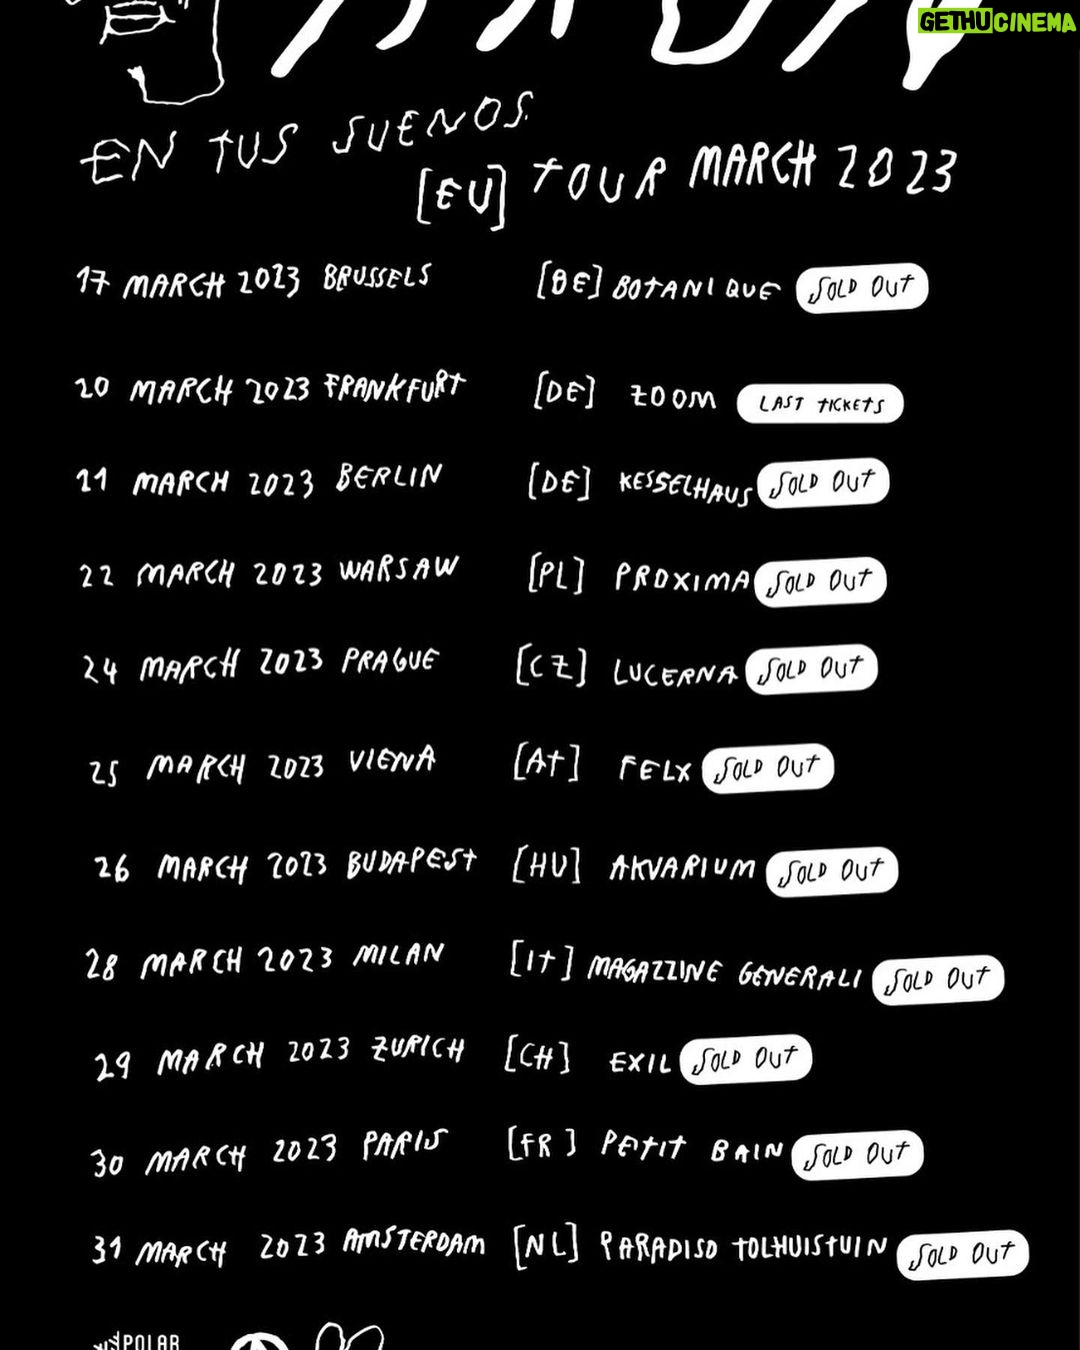 GETHUCINEMA
EN TUS SUENOS
[EU] TOUR MARCH 2023
17 MARCH 2023 BRUSSELS [BE] BOTANIQUE SOLD OUT
20 MARCH 2023 FRANKFURT [DE] ZOOM LAST TICKETS
21 MARCH 2023 BERLIN [DE] KESSELHAUS SOLD OUT
22 MARCH 2023 WARSAW [PL] PROXIMA SOLD OUT
24 MARCH 2023 PRAGUE [CZ] LUCERNA SOLD OUT
25 MARCH 2023 VIENA [AT] FELX SOLD OUT
26 MARCH 2023 BUDAPEST [HU] AKVARIUM SOLD OUT
28 MARCH 2023 MILAN [IT] MAGAZZINE GENERALI SOLD OUT
29 MARCH 2023 ZURICH [CH] EXIL SOLD OUT
30 MARCH 2023 PARIS [FR] PETIT BAIN SOLD OUT
31 MARCH 2023 AMSTERDAM [NL] PARADISO TOLHUISTUIN SOLD OUT
POLAR